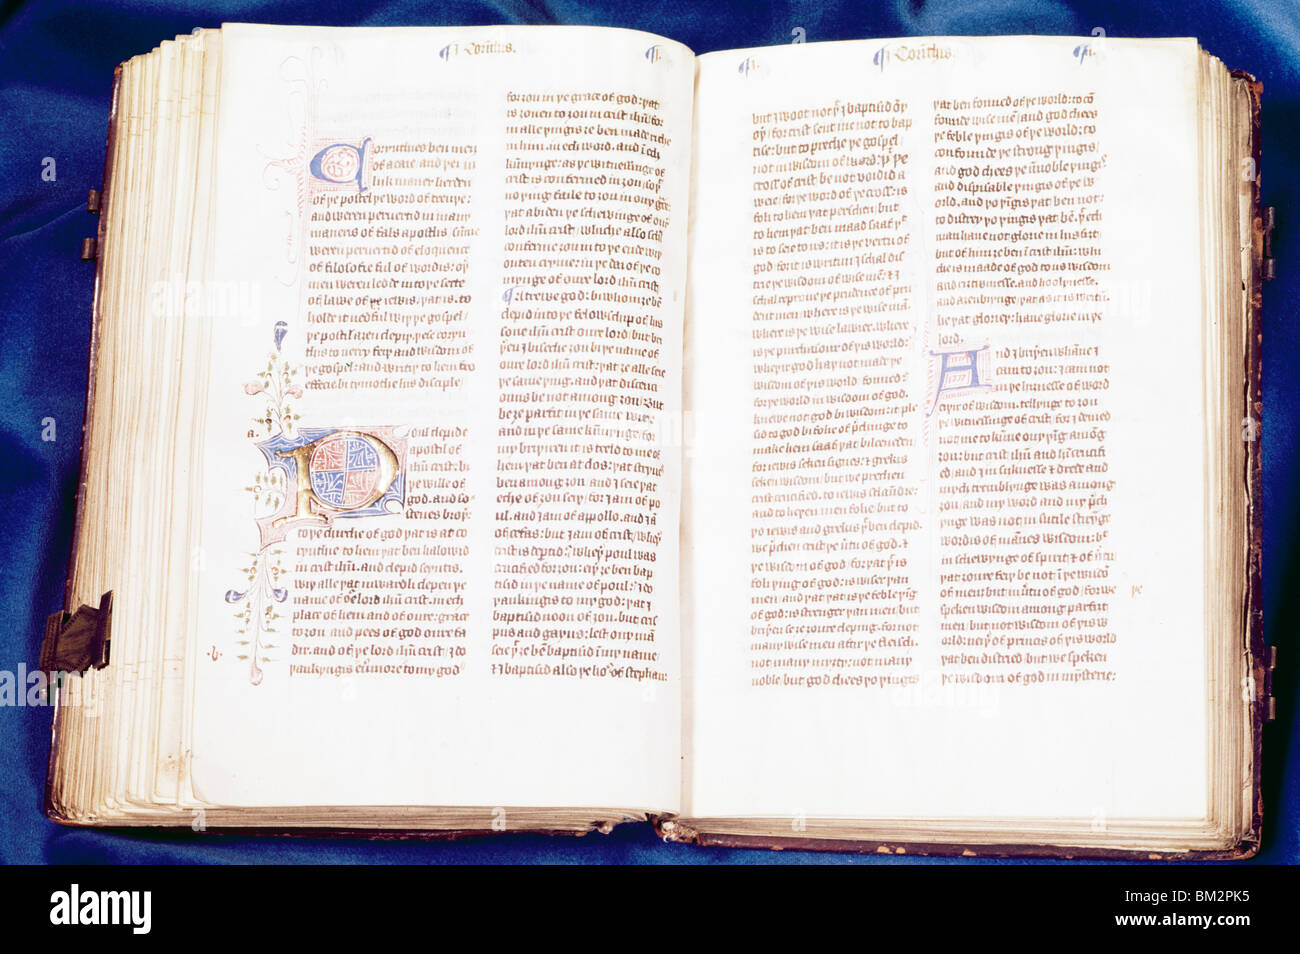 I Corinthis.
I.
Corynthies ben men
of acaie and þei in
lijk maner herden
of þe postel þe word of treuþe:
and weren peruertid in many
maneris of fals apostlis/ summe
weren peruertid of eloquence
of filosofie ful of wordis: oþ
men weren led in to þe secte
of lawe of þe iewis/ þat is. to
holde it nedful wiþ þe gospel/
þe postil aȝen clepiþ þese coryn
this to verey feiþ and wisdom of
þe gospel: and writiþ to hem fro
effecie bi tymothe his disciple/
a.
Poul clepid
apostil of
ihū crist: bi
þe wille of
god. and so
stenes broþ:
to þe chirche of god þat is at co
rynthie to hem þat ben halowid
in crist ihū. and clepid seyntis.
wiþ alle þat inwardli clepen þe
name of oure lord ihū crist. in ech
place of hem and of oure: grace
to ȝou and pees of god oure fa
dir. and of þe lord ihū crist/ I do
.b.
þankyngis euermore to my god
for ȝou in þe grace of god: þat
is ȝouen to ȝou in crist ihū/ for
in alle þingis ȝe ben made riche
in him. in ech word. and in ech
kunnynge: as þe witnessinge of
crist is confermed in ȝou/ so þat
no þing faile to ȝou in ony grace
þat abiden þe schewinge of oure
lord ihū crist/ whiche also schal
conferme ȝou in to þe ende wiþ
outen cryme: in þe dai of þe co
mynge of oure lord ihū crist/
A trewe god: bi whom ȝe ben
clepid in to þe felowschip of his
sone ihū crist oure lord/ but bri
þeren I biseche ȝou bi þe name of
oure lord ihū crist: þat ȝe alle seie
þe same þing. and þat discenci
ouns be not among ȝou/ but
be ȝe parfit in þe same witt:
and in þe same kunnynge/ for
my briþeren it is teeld to me of
hem þat ben at cloes: þat stryues
ben among ȝou. and I seie þat
eche of ȝou seiþ/ for I am of po
ul. and I am of appollo. and I am
of cefas: but I am of crist/ wheþer
crist is departid: wheþer poul was
crucified for ȝou: eiþer ȝe ben bap
tisid in þe name of poul: I do
þankyngis to my god: þat I
baptisid noon of ȝou. but cris
pus and gayus: lest ony man
seie þat ȝe ben baptisid in my name/
& I baptisid also þe hous of stephan/
I.
Corinthis.
I.
but I woot not þat I baptisid ony
oþer/ for crist sente me not to bap
tise: but to preche þe gospel/
not in wisdom of word: þat þe
cross of crist be not voidid a
wey/ for þe word of þe cross is
foli to hem þat perschen/ but
to hem þat ben maad saaf þat
is to seie to us: it is þe vertu of
god/ for it is writun I schal dis
trie þe wisdom of wise men: & I
schal reproue þe prudence of pru
dent men/ where is þe wise man.
where is þe wise lawier. where
is þe purchasoure of þis world:
wheþer god haþ not made þe
wisdom of þis world fonned:
for þe world in wisdom of god.
knewe not god bi wisdom: it ple
sid to god bi folie of prechinge to
make hem saaf þat bileeueden/
for iewis seken signes: & grekis
seken wisdom/ but we prechen
crist crucified. to iewis sclaundre:
and to heþen men folie/ but to
þo iewis and grekis þat ben clepid.
we prechen crist þe vertu of god. &
þe wisdom of god/ for þat þat is
foli þing of god: is wiser þan
men/ and þat þat is þe feble þing
of god: is strenger þan men/ but
briþeren se ȝe ȝoure cleping. for not
many wise men aftir þe fleisch.
not many myȝty: not many
noble/ but god chees þo þingis
þat ben fonned of þe world: to con
founde wise men/ and god chees
þe feble þingis of þe world: to
confounde þe stronge þingis/
and god chees þe unnoble þingis
and dispisable þingis of þe w
orld. and þo þingis þat ben not:
to distrey þo þingis þat ben/ þat ech
man haue not glorie in his siȝt/
but of him ȝe ben in crist ihū: whi
che is maade of god to us wisdom
and riȝtwisnesse. and hoolynesse.
and aȝenbiynge/ þat as it is writun.
he þat glorieþ: haue glorie in þe
lord.
And I briþeren whanne I
cam to ȝou: I cam not
in þe hiȝnesse of word
eiþer of wisdom. tellynge to ȝou
þe witnessinge of crist/ for I demed
not me to kunne ony þing among
ȝou: but crist ihū. and him crucifi
ed/ and I in sikenesse & drede and
mych tremblynge was among
ȝou/ and my word and my prech
ynge was not in sutile stirynge
wordis of mannes wisdom: but
in schewynge of spirit & of vertu
þat ȝoure feiþ be not in þe wisdom
of men but in vertu of god/ for we þe
speken wisdom among parfit
men/ but not wisdom of þis w
orld: neiþer of princes of þis world
þat ben distried/ but we speken
þe wisdom of god in mysterie:
alamy
Image ID: BM2PK5
www.alamy.com